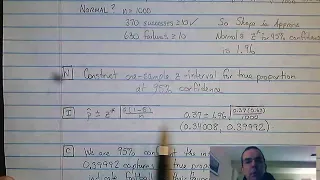 NORMAL? n = 1000
370 successes ≥ 10 ✓ So Shape is Approx
630 failures ≥ 10 Normal & z* for 95% confidence
is 1.96
N Construct one-sample z interval for true proportion
at 95% confidence.
I p̂ ± z* √(p̂(1-p̂)/n) 0.37 ± 1.96 √(0.37(0.63)/1000)
(0.34008, 0.39992)
C We are 95% confident the in
0.39992 captures the true propor